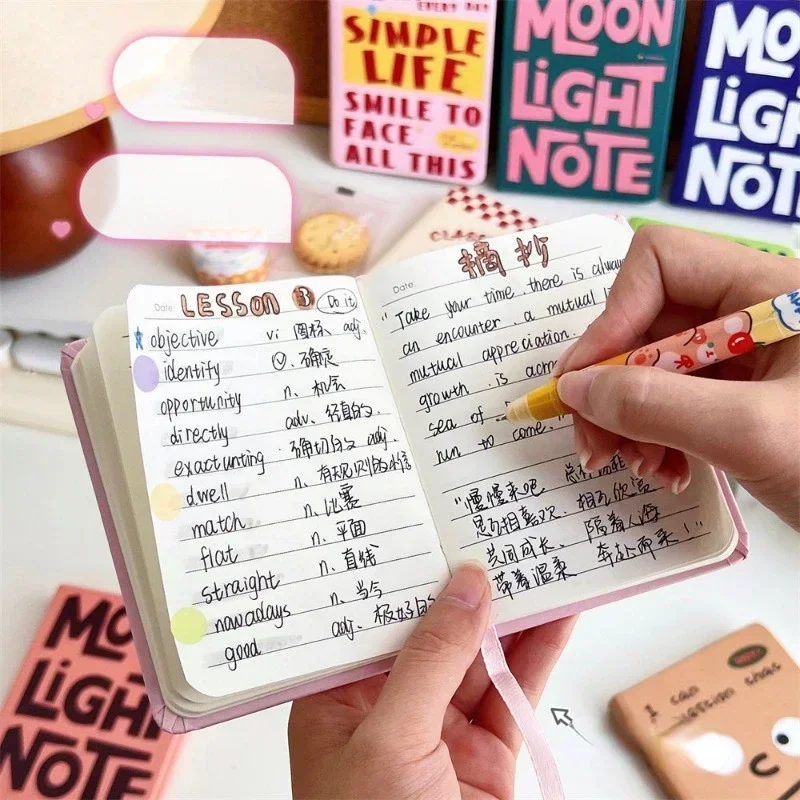 EVERY DAY
SIMPLE
LIFE
SMILE TO
FACE
ALL THIS
MOON
LIGHT
NOTE
MO
LIG
NOT
CLAS
Date:
LESSON 3
Do it
objective vi 图标 adj.
identify 确定
opportunity n. 机会
directly adv. 径直的.
exactunting 确切的 adj.
dwell n. 有规则的
match n. 比赛
flat n. 平面
straight n. 直线
nawadays n. 当今
good adj. 极好的
Date:
摘抄
"Take your time. there is always
an encounter. a mutual
mutual appreciation.
growth. is acro
sea of
run to come.
"慢慢来吧 总有
是互相喜欢、相互欣赏
共同成长、隔着人海
带着温柔 奔赴而来!"
MO
LIGH
NOTE
I can